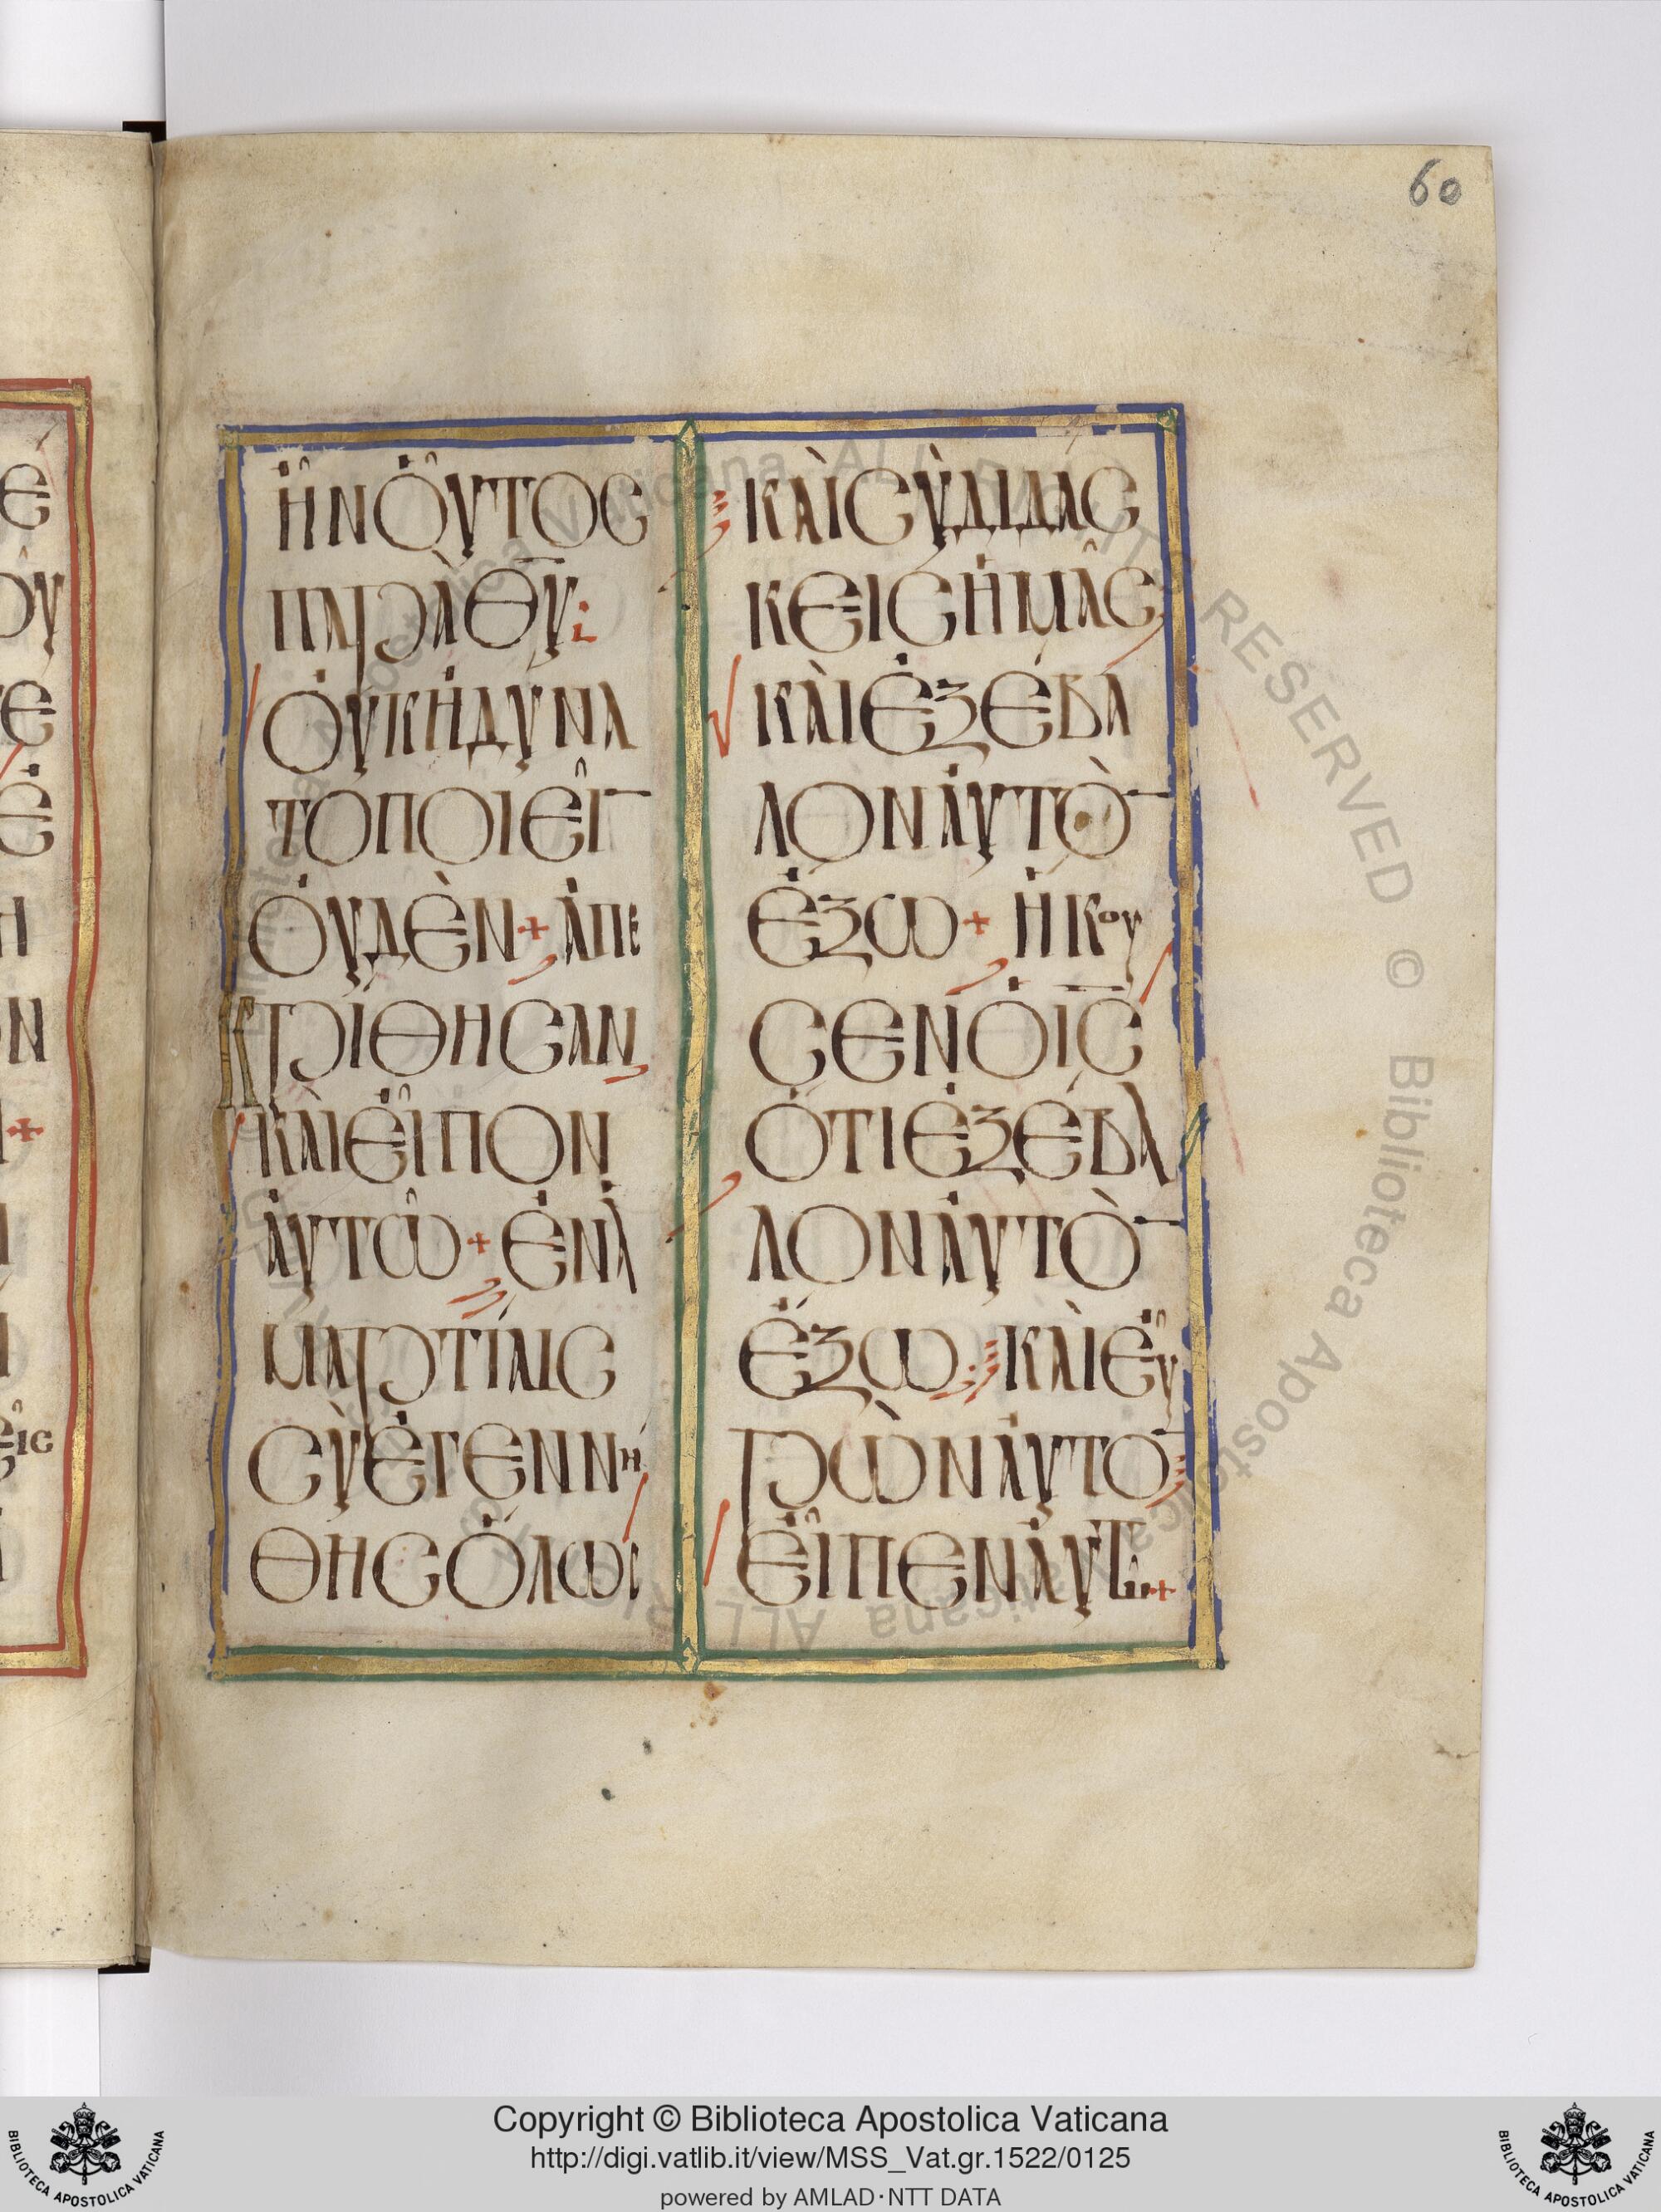 60
ἮΝΟὟΤΟC
ΠΑΡᾺΘΥ̅:
ΟὐΚἠΔΥΝΑ
ΤΟΠΟΙΕῖ̅
ΟὐΔὲΝ+ἀΠΕ
ΚΡίΘΗCΑΝ
ΚΑὶΕἶΠΟΝ
ΑὐΤῶ+ἐΝἁ
ΜΑΡΤίΑΙC
CὺἐΓΕΝΝή
ΘΗCὅΛωC
ΚΑὶCὺΔΙΔΑC
ΚΕΙCἡΜᾶC
ΚΑὶἐΞέΒΑ
ΛΟΝΑὐΤὸ̅
ἔΞω+ἤΚΟΥ
CΕΝὁΙ̅C̅
ὅΤΙἐΞέΒΑ
ΛΟΝΑὐΤὸ̅
ἔΞω:ΚΑὶΕὑ
ΡὼΝΑὐΤΟ̅
ΕἶΠΕΝΑὐΤω+
Ε
ΟΥ
Ε
Ε
Η
ΟΝ
+
ΕἶC
Copyright © Biblioteca Apostolica Vaticana
http://digi.vatlib.it/view/MSS_Vat.gr.1522/0125
powered by AMLAD·NTT DATA
BIBLIOTECA APOSTOLICA VATICANA
BIBLIOTECA APOSTOLICA VATICANA